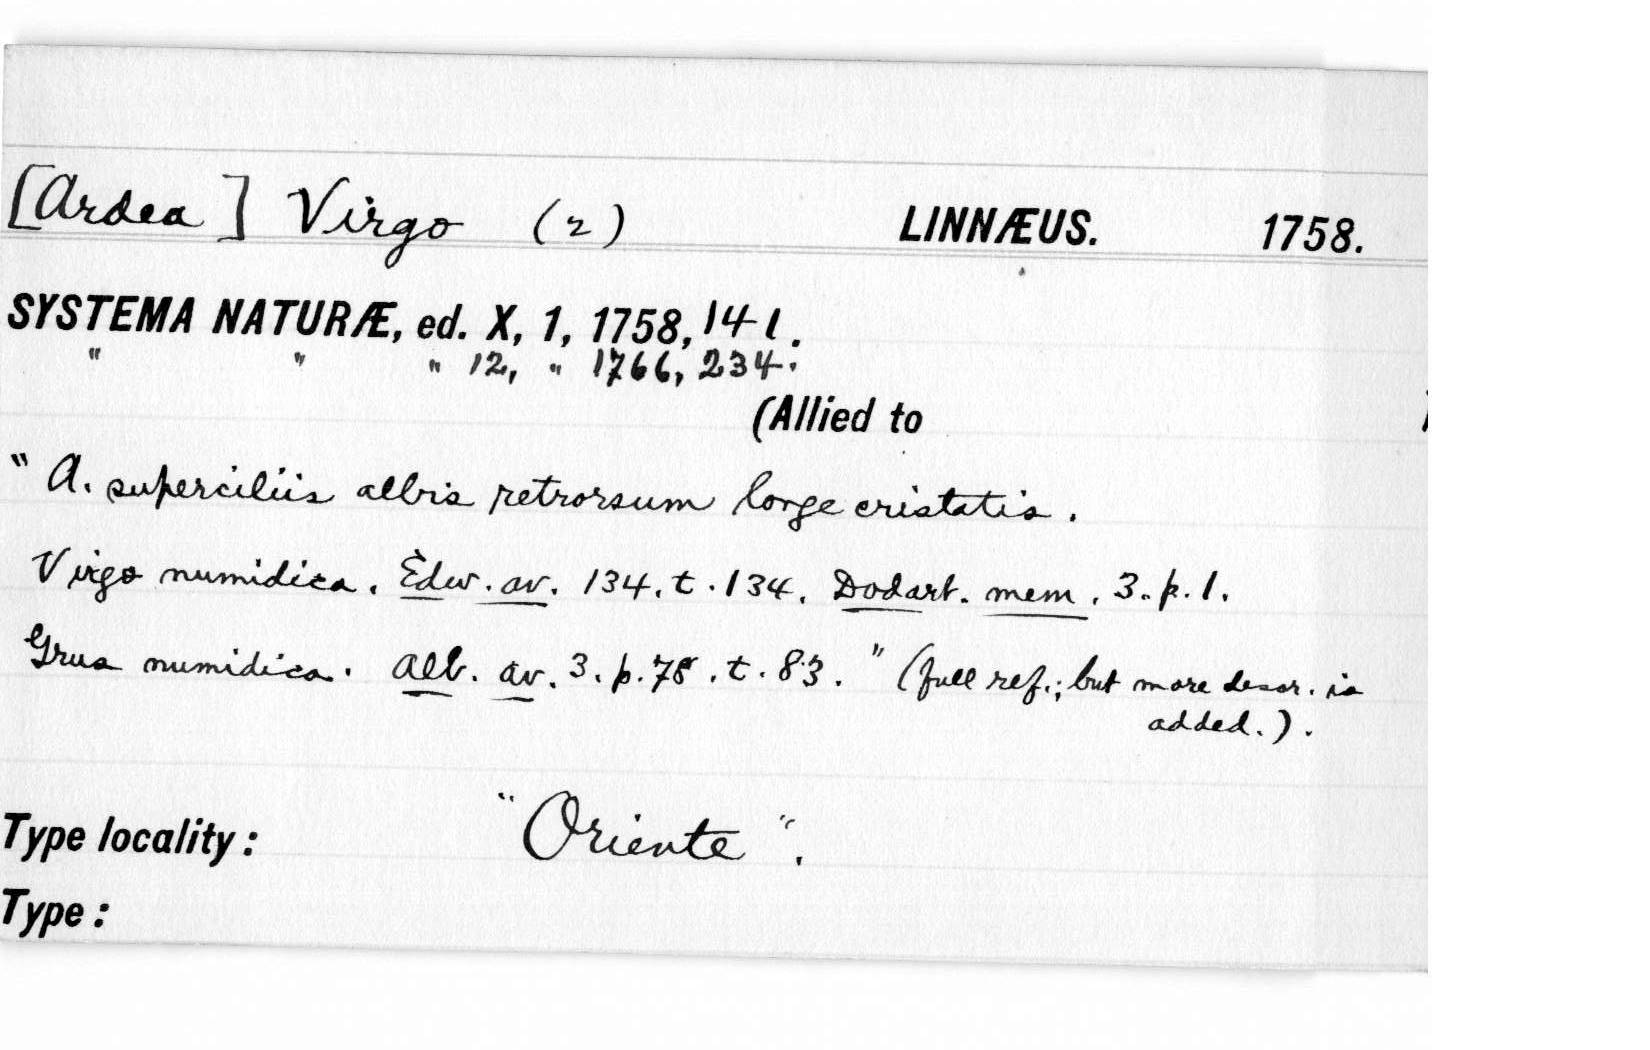 [Ardea] Virgo (2) LINNÆUS. 1758.
SYSTEMA NATURÆ, ed. X, 1, 1758, 141.
" " " 12, " 1766, 234.
(Allied to
" A. superciliis albis retrorsum longe cristatis.
Virgo numidica. Edw. av. 134. t. 134. Dodart. mem. 3. p. 1.
Grus numidica. Alb. av. 3. p. 78. t. 83. " (full ref.; but more descr. is
added.).
Type locality: "Oriente".
Type: